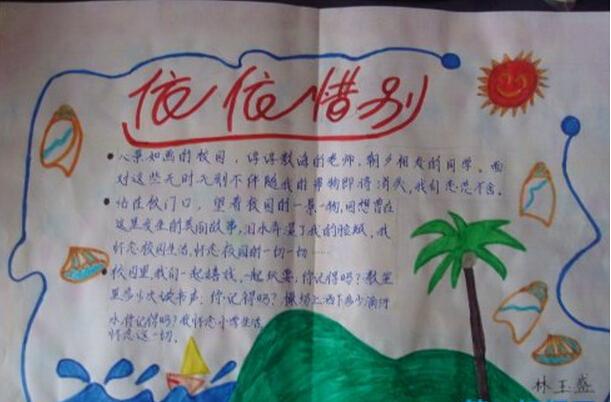 依依惜别
• 人景如画的校园，谆谆教诲的老师，朝夕相处的同学。面
对这些无时无刻不伴随我的事物即将消失，我们恋恋不舍。
• 站在校门口，望着校园的一景一物，回想曾在
这里发生的美丽故事，泪水弄湿了我的脸颊。我
怀恋校园生活，怀恋校园的一切一切……
• 校园里我们一起嬉戏，一起玩耍，你记得吗？教室
里多少次读书声，你记得吗？操场上洒下多少滴汗
水你记得吗？我怀恋小学生活，
怀恋这一切。
林玉盛